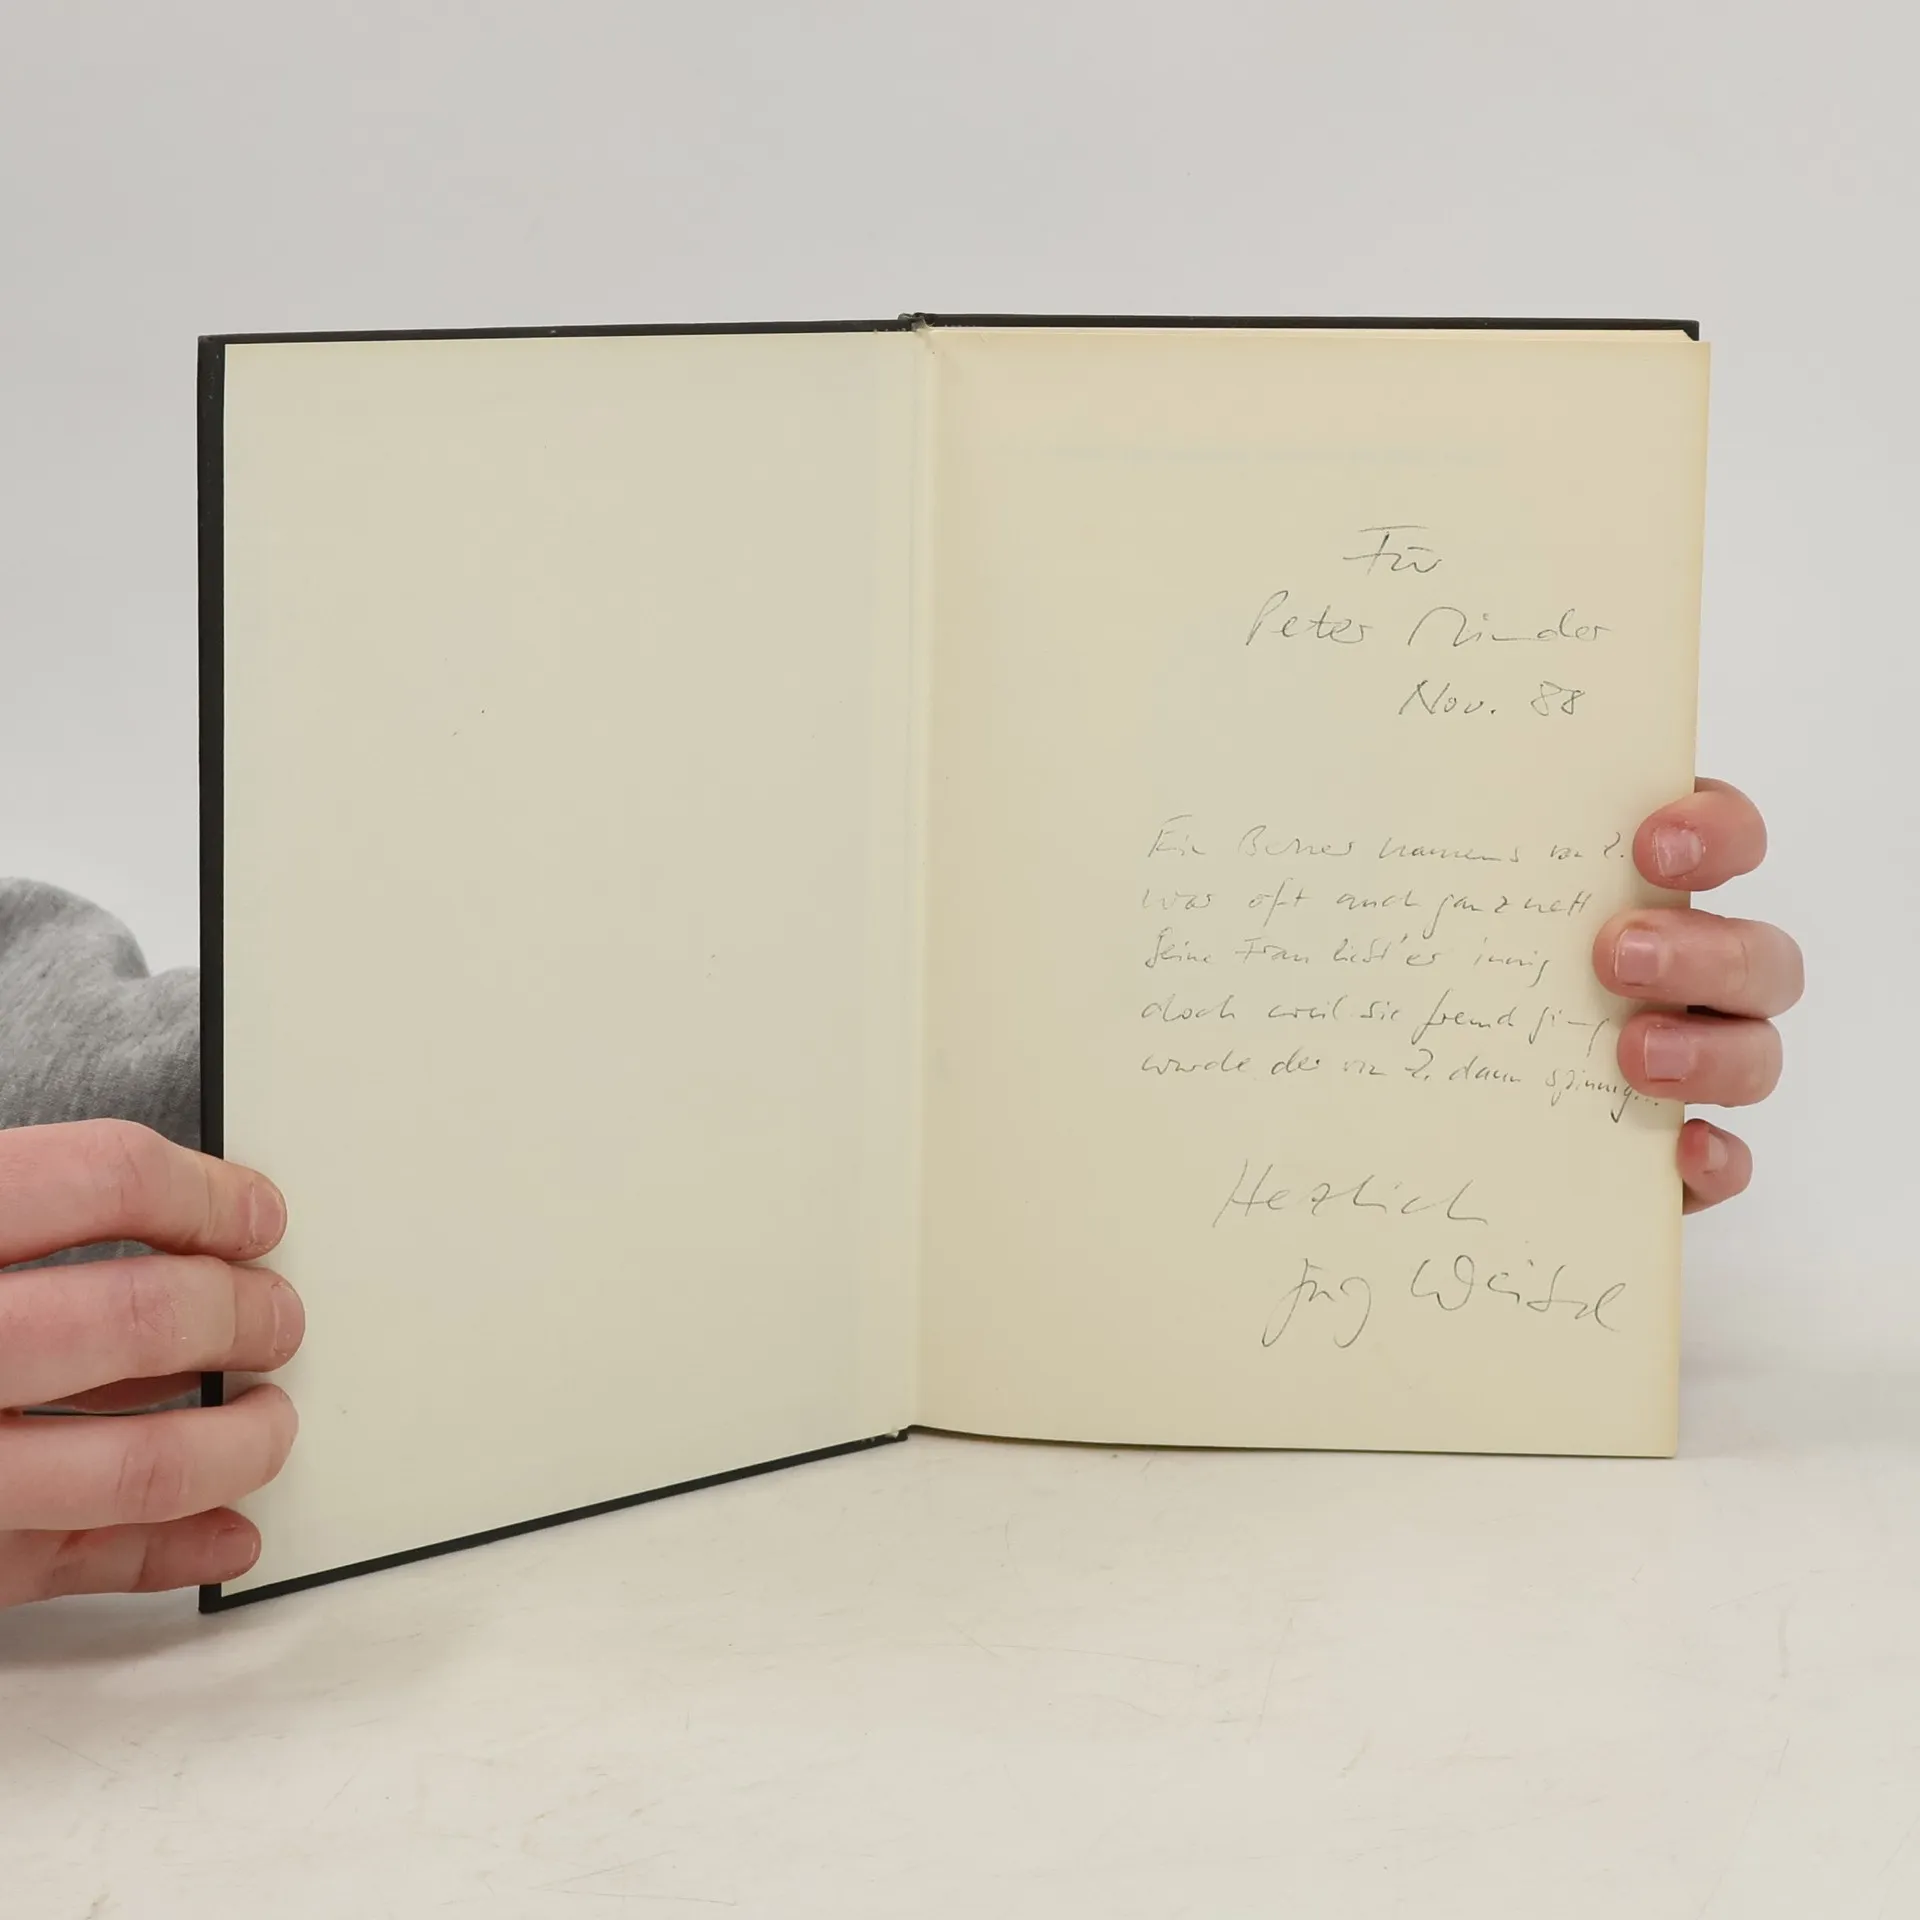 Für
Peter Minder
Nov. 88
Ein Berner namens von Z.
war oft auch ganz nett
seine Frau liebt' er innig
doch weil sie fremd ging
wurde der von Z. dann spinnig...
Herzlich
Jürg Weibel